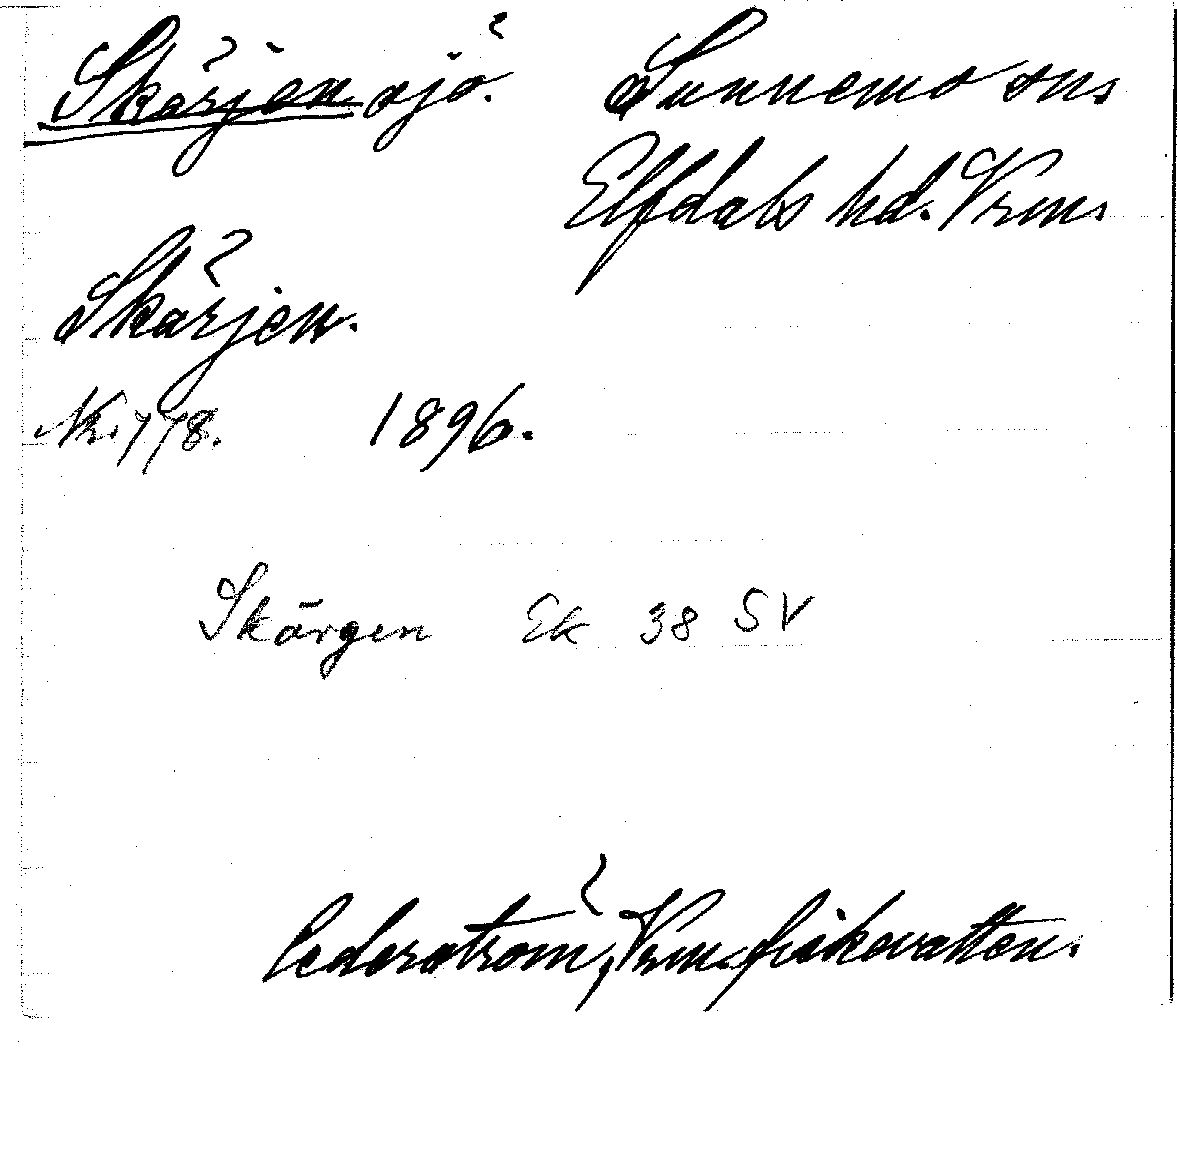 Skärjen sjö. Sunnemo sn.
Elfdals hd. Vrm.
Skärjen.
Nr. 778. 1896.
Skärgen Ek 38 SV
Cederström, Vrm. fiskevatten.